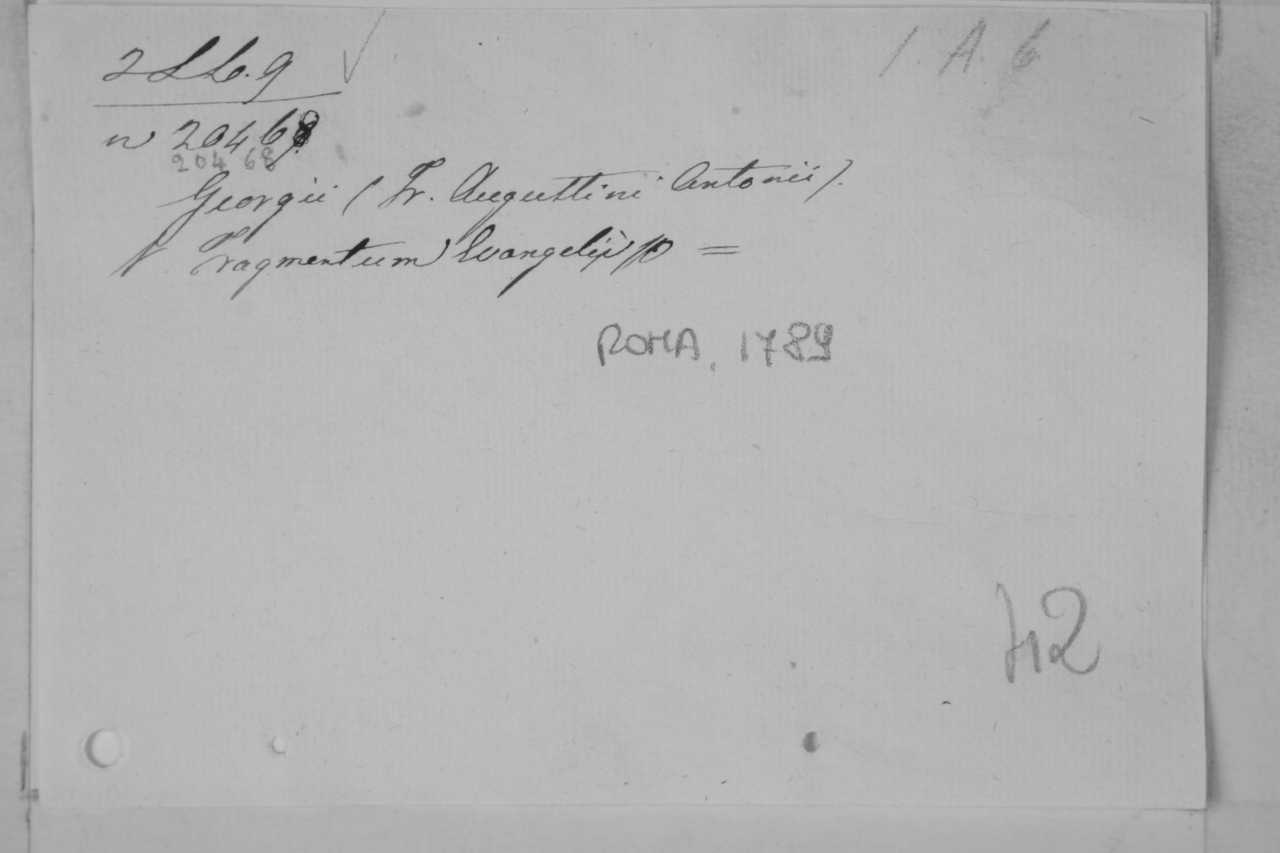 2 L L. 9
1. A. 6
n 20468
20468
Georgii (Fr. Augustini Antonii).
Fragmentum Evangelii =
ROMA, 1789
42